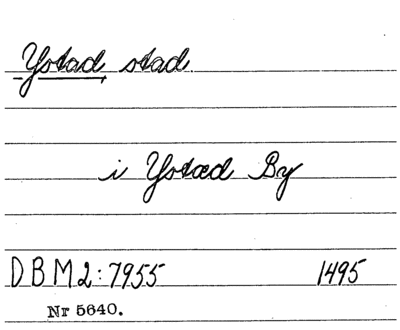 Ystad stad.
i Ystæd By
DBM2:7955 1495
Nr 5640.